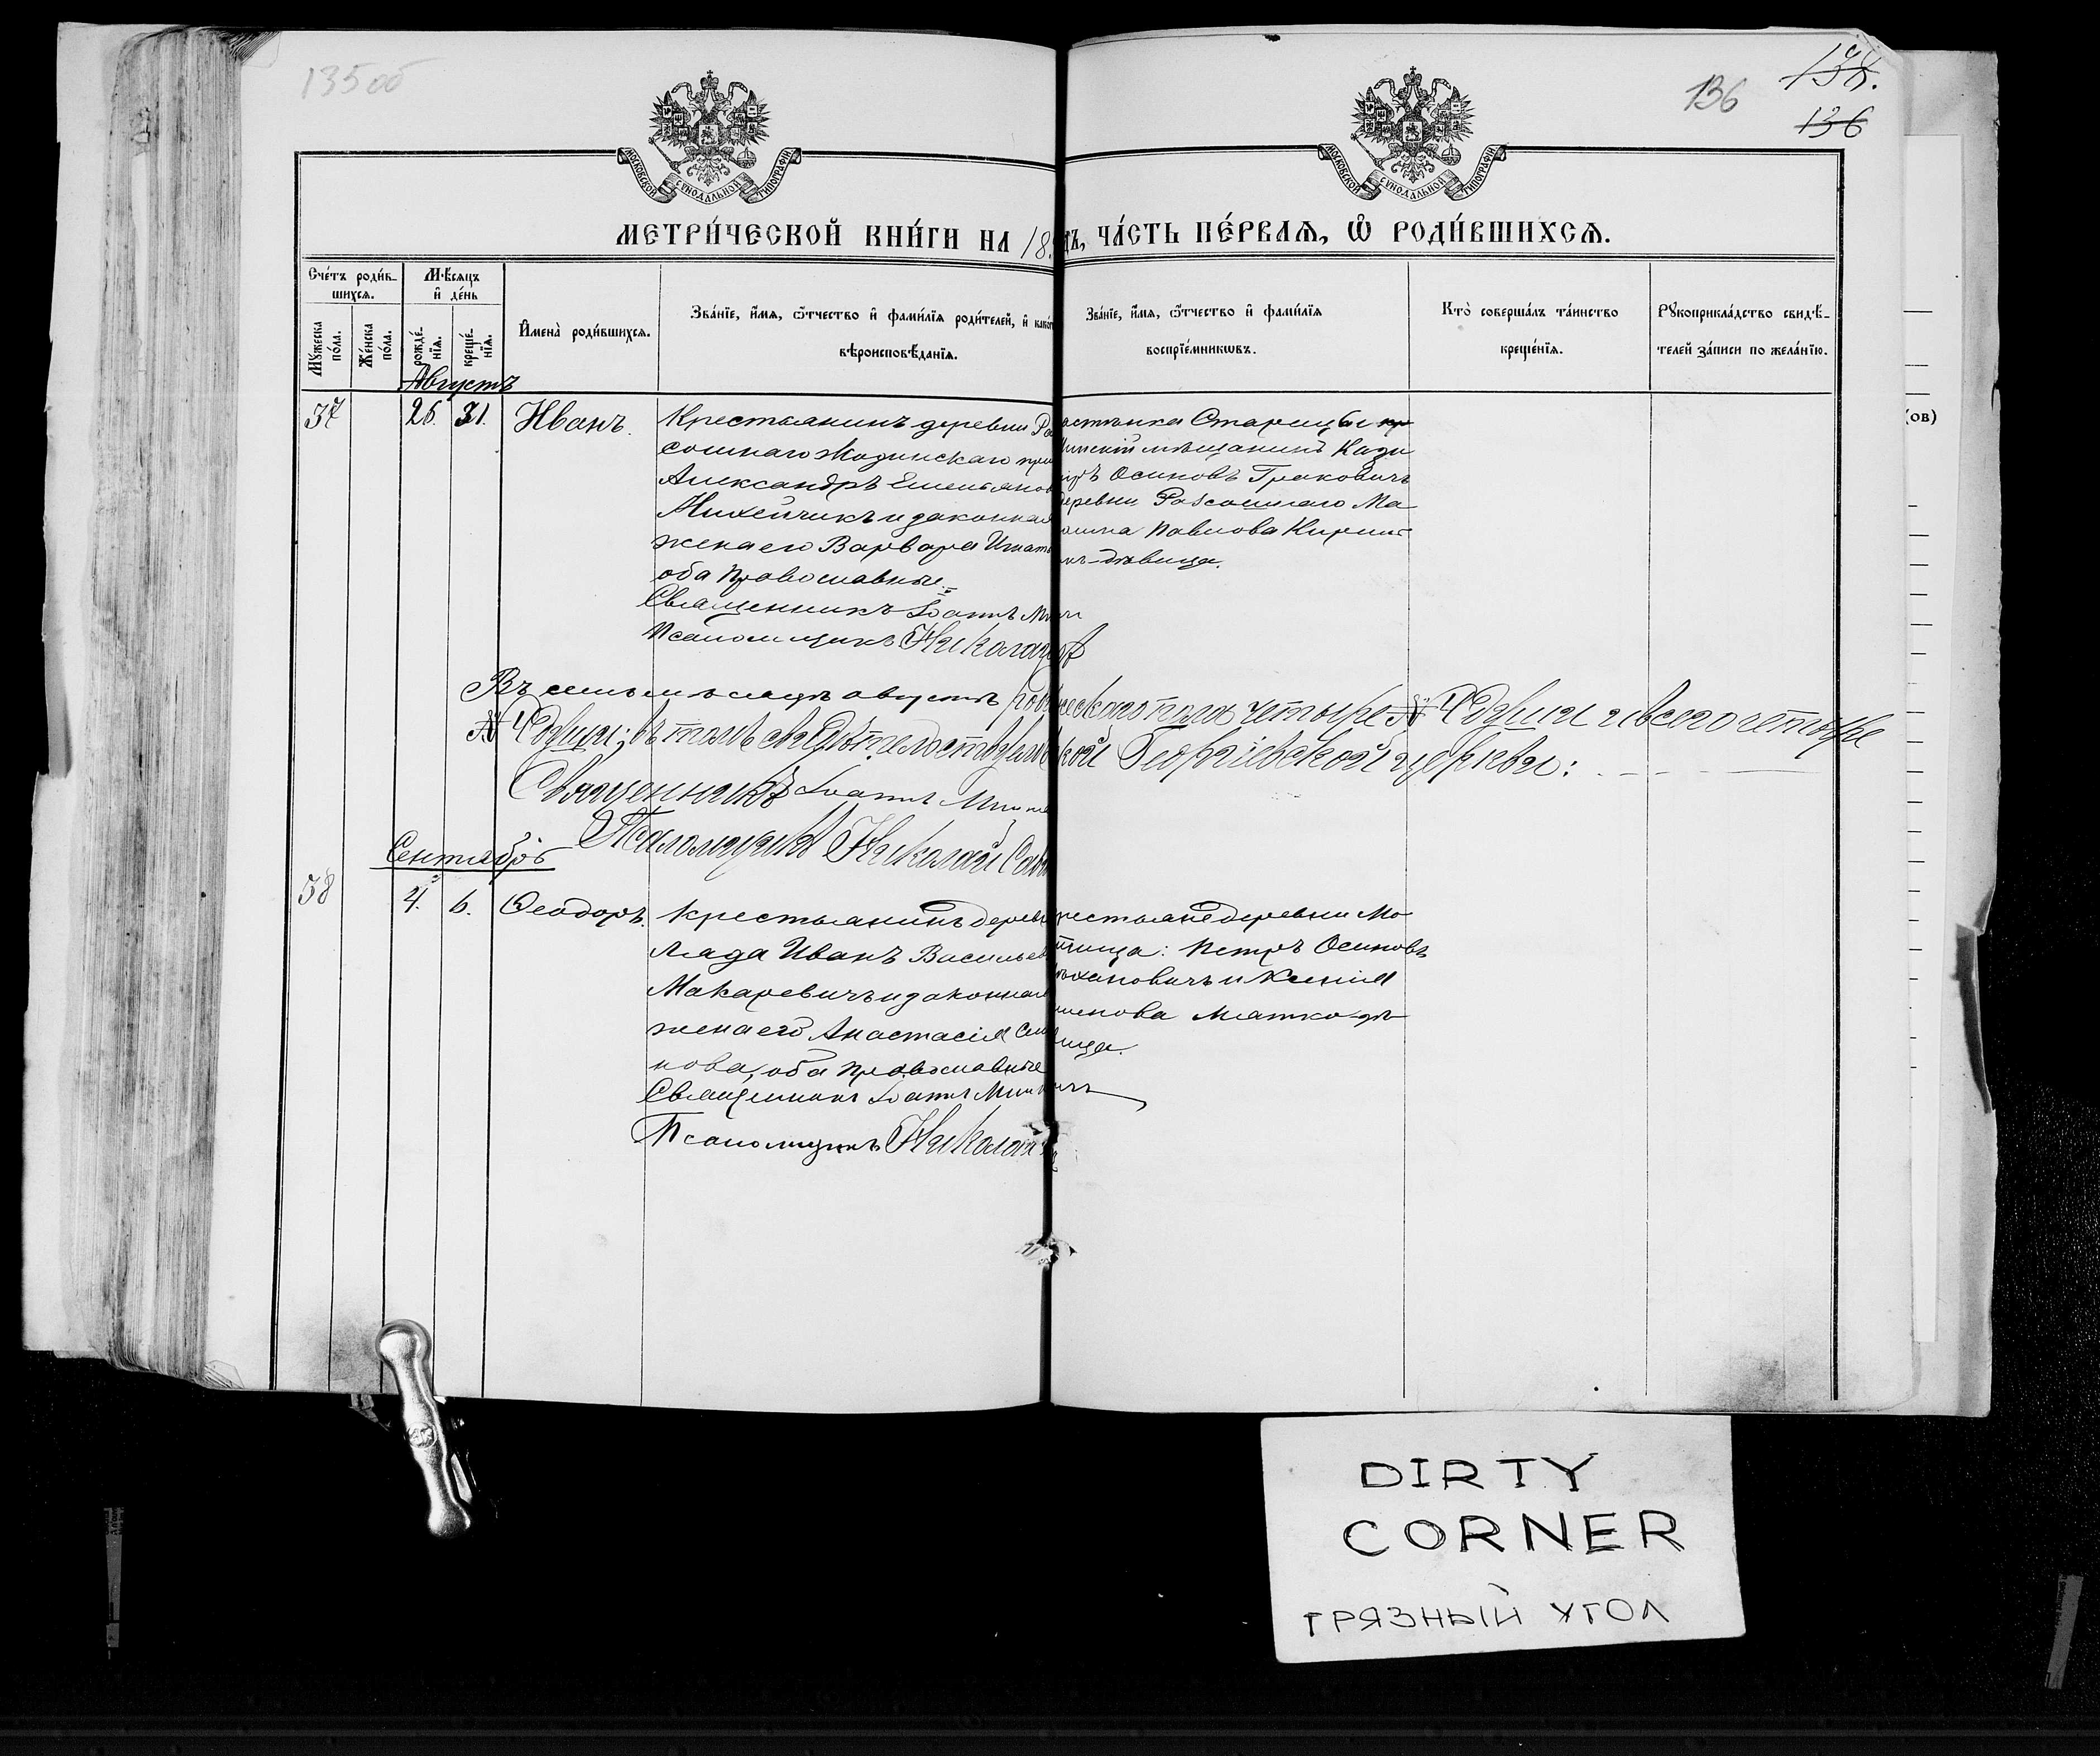 135 об
136
136
МОСКОВСКОЙ СУНОДАЛЬНОЙ ТИПОГРАФІИ
МОСКОВСКОЙ СУНОДАЛЬНОЙ ТИПОГРАФІИ
МЕТРИ́ЧЕСКОЙ КНИ́ГИ НА 18
ЧА́СТЬ ПЕ́РВАѦ, Ѡ҆ РОДИ́ВШИХСѦ.
Сче́тъ роди́в-
шихсѧ.
Мѣ́сѧцъ
и҆ де́нь
Мꙋ́жеска по́ла.
Же́нска по́ла.
рожде́-нїѧ.
креще́-нїѧ.
И҆мена̀ роди́вшихсѧ.
Зва́нїе, и҆́мѧ, ѻ҆́тчество и҆ фами́лїѧ роди́телей, и҆ како́г
вѣроисповѣ́данїѧ.
Зва́нїе, и҆́мѧ, ѻ҆́тчество и҆ фами́лїѧ
воспрїе́мникѡвъ.
Кто̀ соверша́лъ та́инство
креще́нїѧ.
Рꙋкоприкла́дство свидѣ́-
телей за́писи по жела́нїю.
Августъ
37 26. 31. Иванъ.
Крестьянинъ деревни Ра
сошнаго
Александръ Емельянов
Михейчикъ и законная
жена его Варвара Игнат
оба православные.
Священникъ Іоаннъ Мин
Псаломщикъ Николай
остянка Старицы
Минскій мѣщанинъ Кази
міръ Осиповъ
деревни Разсошнаго Ма
Павлова
дѣвица.
Въ семъ мѣсяцѣ августѣ
ческаго пола четыре 4 души и всего четыре
4 души; въ томъ свидѣтельствуем
кой Георгіевской церкви:
Священникъ Іоаннъ Мин
Псаломщикъ Николай Сав
Сентябрь
38 4. 6. Ѳеодоръ.
Крестьянинъ дерев
Лада Иванъ Васильев
Макаревичъ и законная
жена его Анастасія Сем
нова, оба православные
Священникъ Іоаннъ Минкевичъ
Псаломщикъ Николай
рестьяне деревни Мо
Петръ Осиповъ
и Ксенія
менова Матко дѣ
вица.
(ов)
DIRTY
CORNER
ГРЯЗНЫЙ УГОЛ